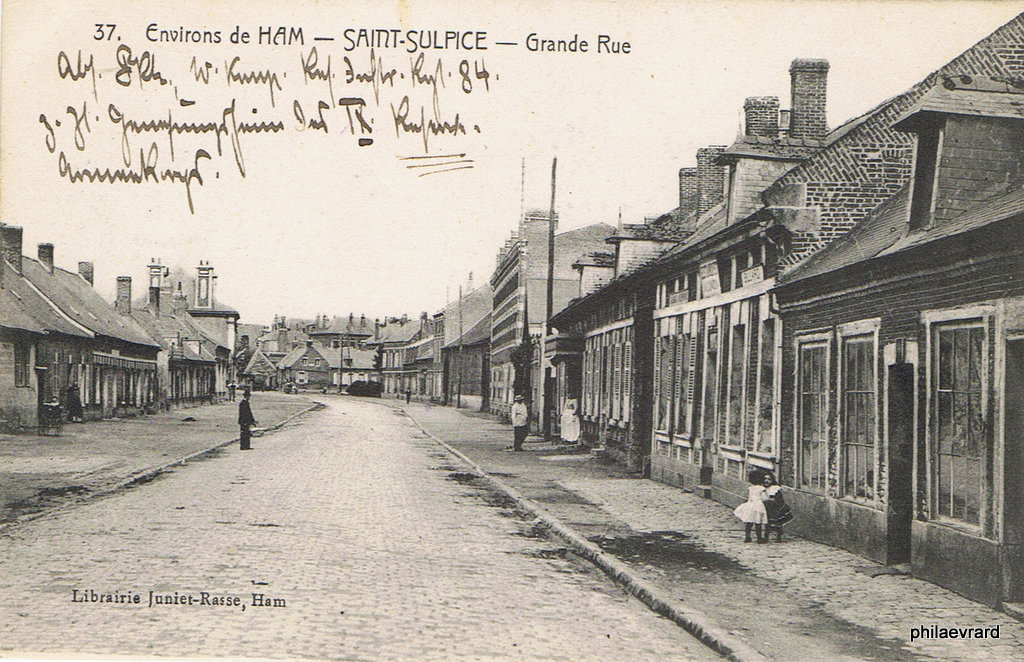 37. Environs de HAM — SAINT-SULPICE — Grande Rue
Abs. W. Komp. Res. Inftr. Regt. 84.
z. Zt. Genesungsheim des IX. Reserve-
Armeekorps.
Librairie Juniet-Rasse, Ham
philaevrard